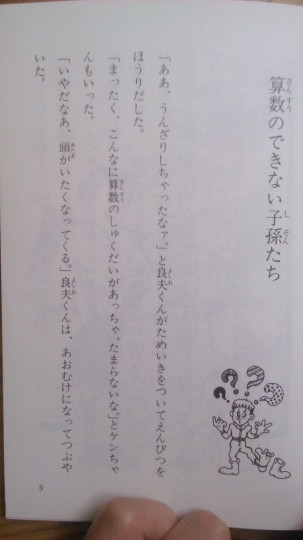 算数のできない子孫たち
「ああ、うんざりしちゃったなァ。」と良夫くんがためいきをついてえんぴつを
ほうりだした。
「まったく、こんなに算数のしゅくだいがあっちゃ、たまらないな。」とケンちゃ
んもいった。
「いやだなあ、頭がいたくなってくる。」良夫くんは、あおむけになってつぶや
いた。
5